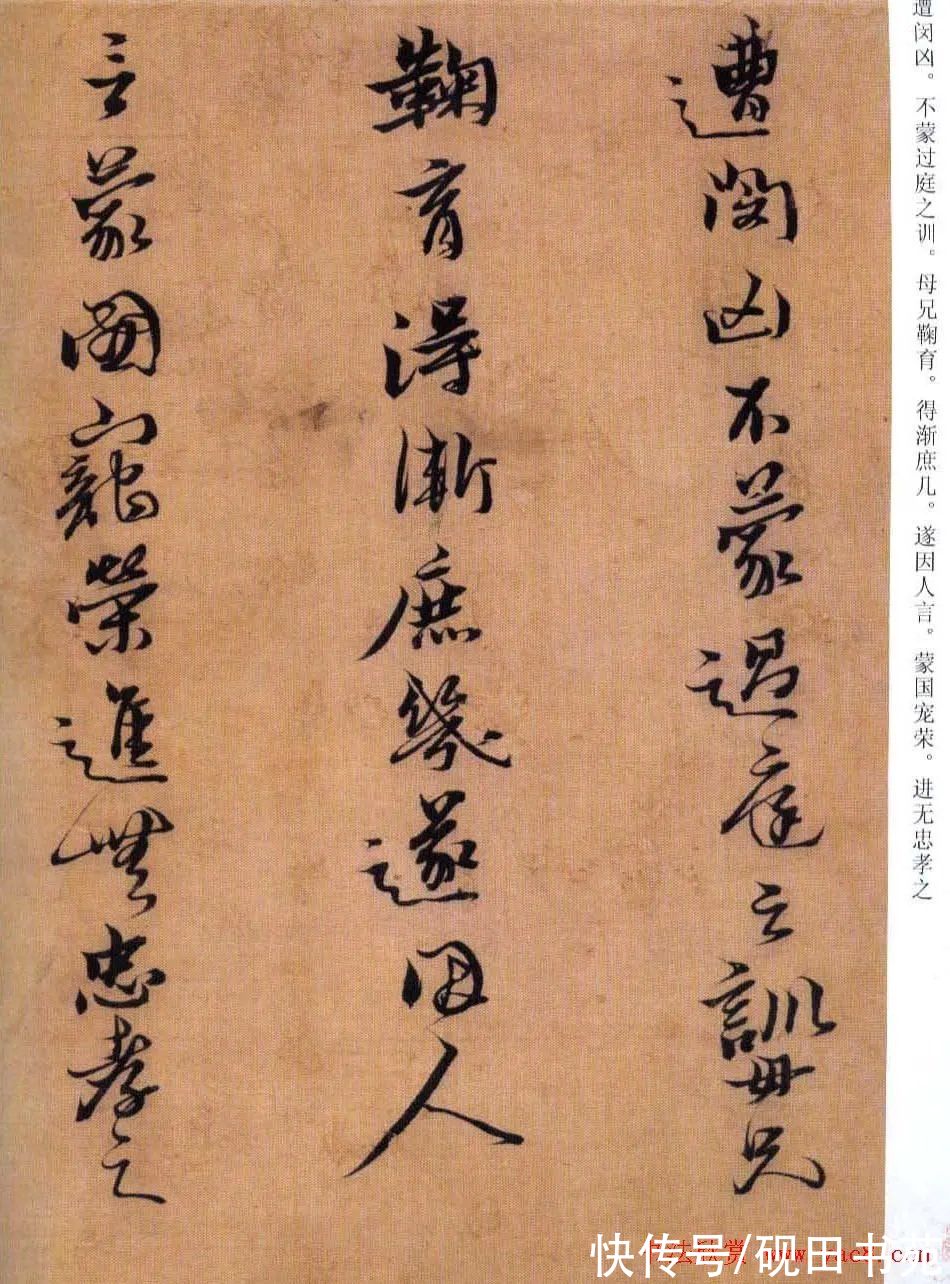 遭闵凶。不蒙过庭之训。母兄鞠育。得渐庶几。遂因人言。蒙国宠荣。进无忠孝之
遭閔凶不蒙過庭之訓母兄
鞠育得漸庶幾遂因人
言蒙國寵榮進無忠孝之
快传号/砚田书苑